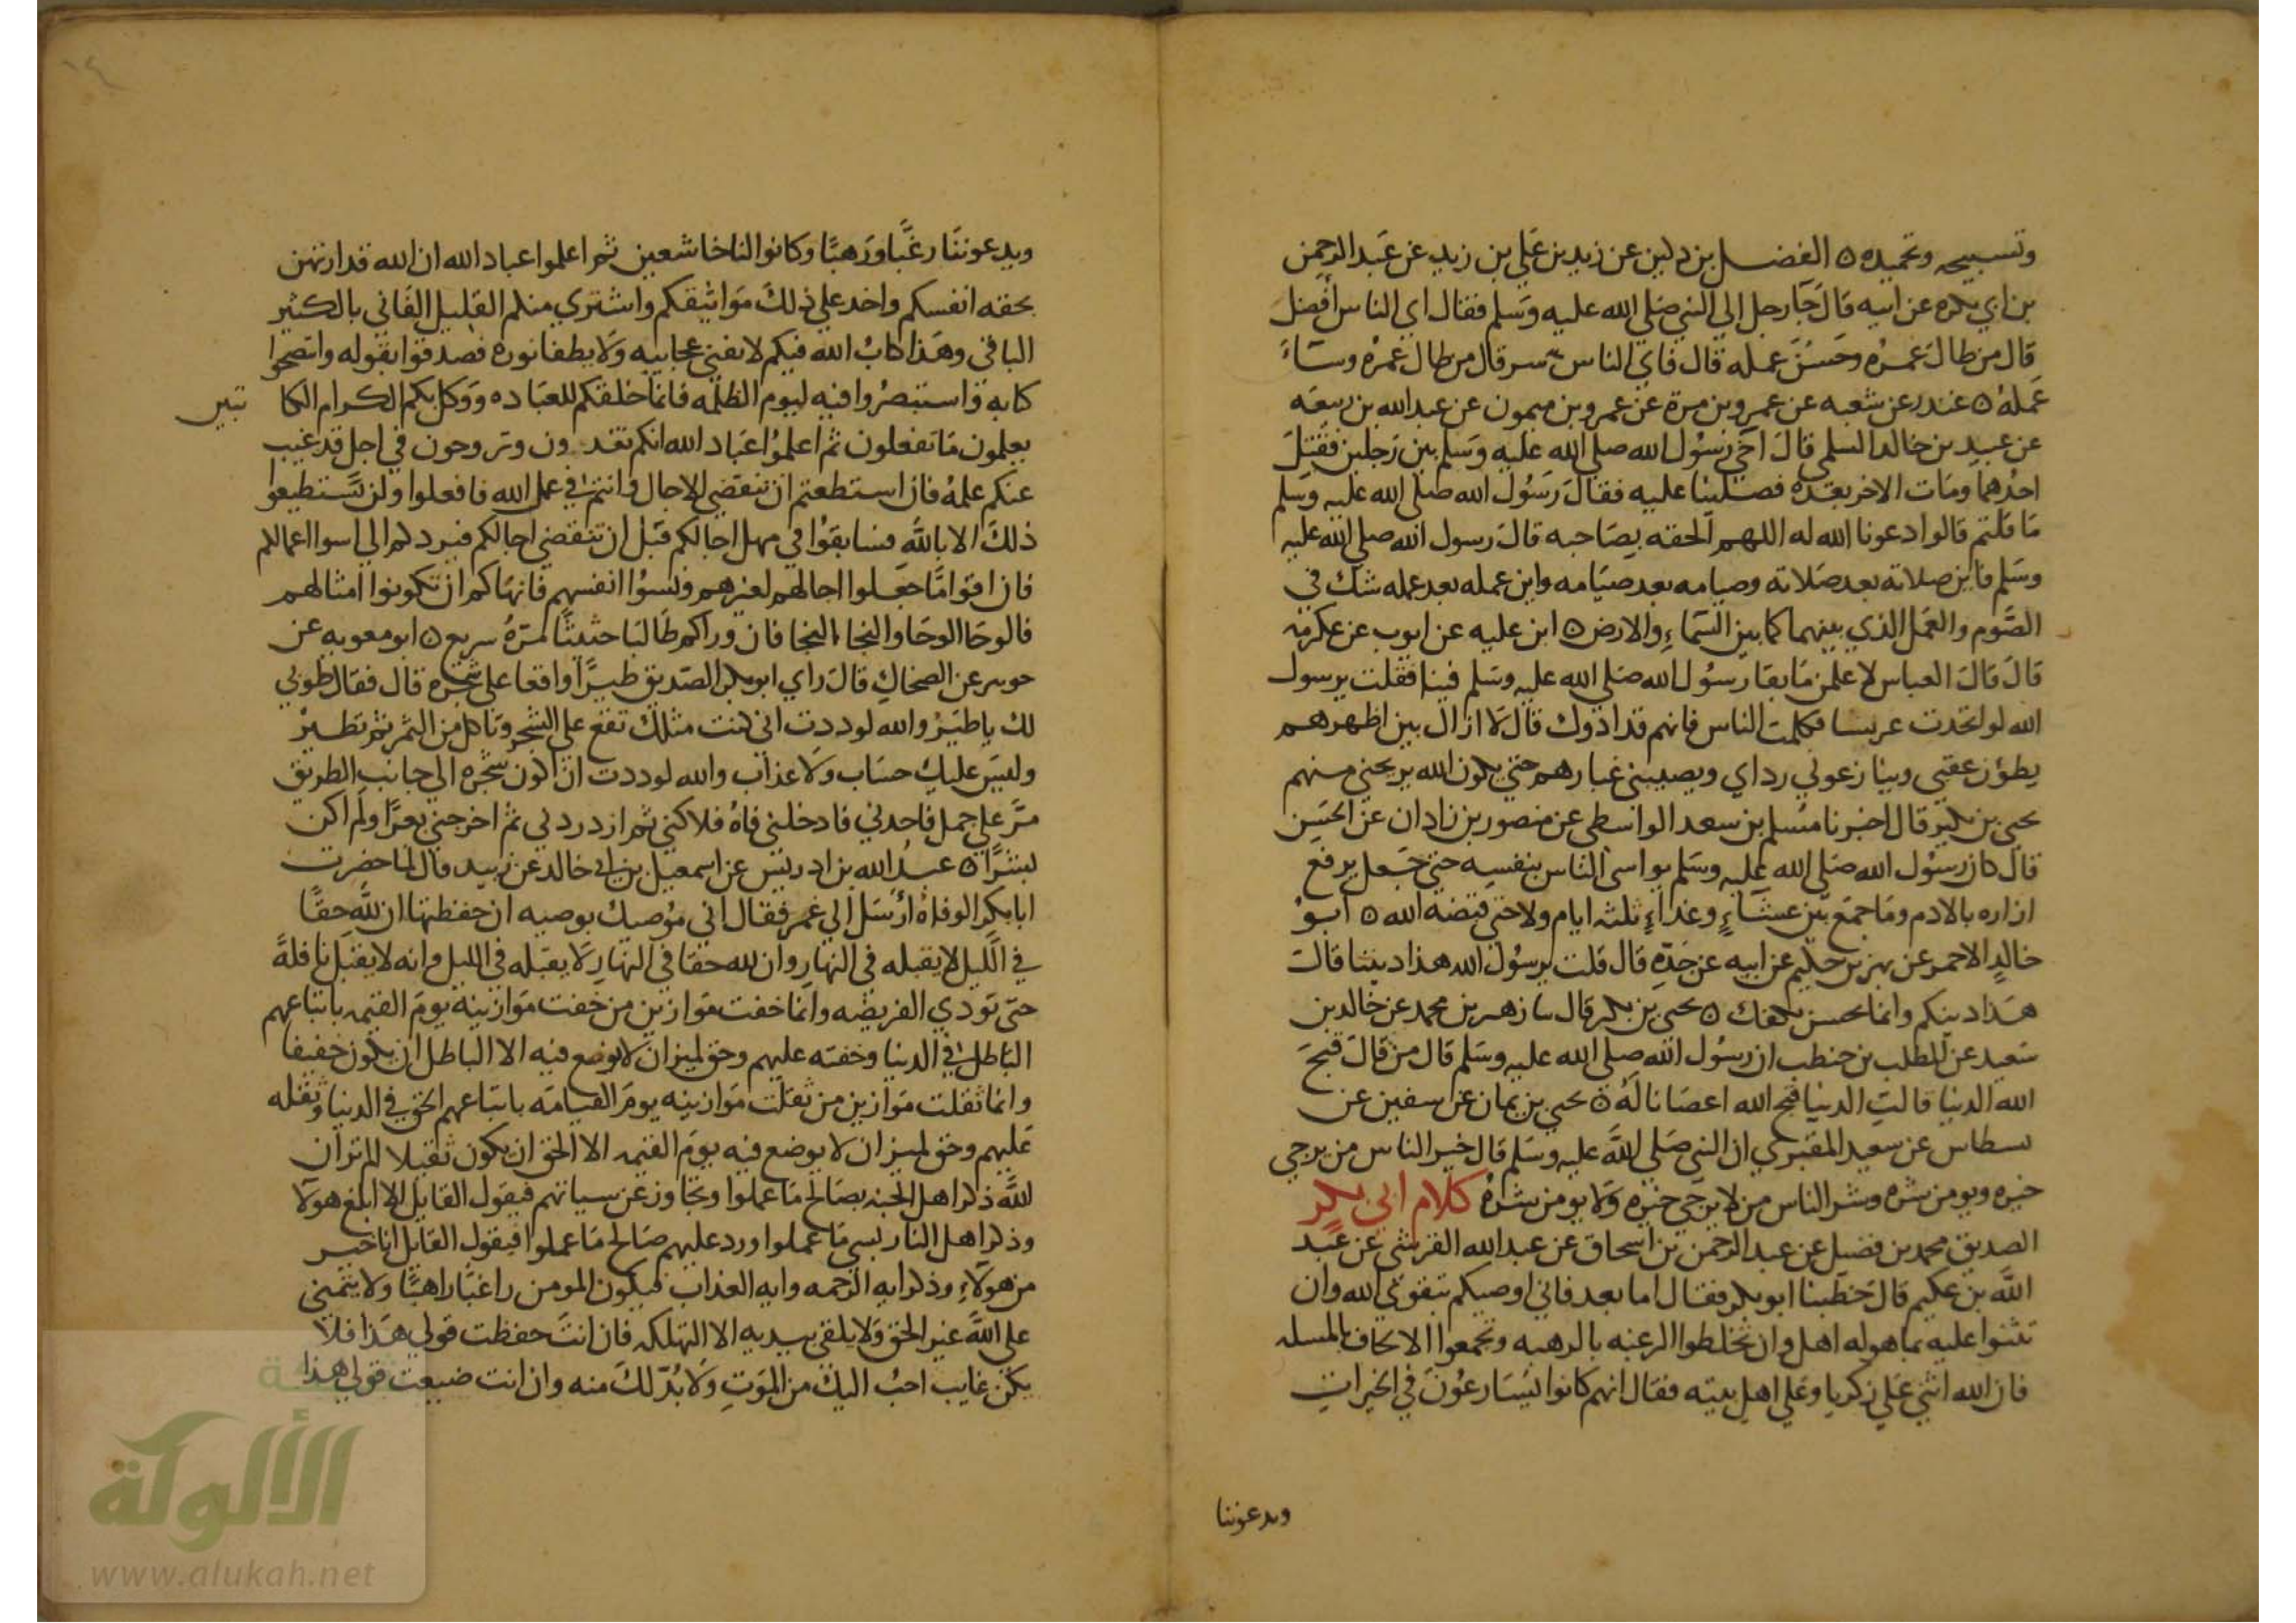 وتسبيحه وتحميده ٥ الفضل بن دلين عن زيد بن علي بن زيد عن عبد الرحمن
بن ابي بكره عن ابيه قال جا رجل إلي النبي صلي الله عليه وسلم فقال اي الناس أفضل
قال من طال عمره وحسن عمله قال فاي الناس شر قال من طال عمره وساء
عمله ٥ غندر عن شعبه عن عمرو بن مرة عن عمرو بن ميمون عن عبد الله بن ربيعه
عن عبيد بن خالد السلمي قال اخي رسول الله صلي الله عليه وسلم بين رجلين فقتل
احدهما ومات الاخر بعده فصلينا عليه فقال رسول الله صلي الله عليه وسلم
ما قلتم قالوا دعونا الله له اللهم الحقه بصاحبه قال رسول الله صلي الله عليه
وسلم فاين صلاته بعد صلاته وصيامه بعد صيامه واين عمله بعد عمله شك في
الصوم والعمل الذي بينهما كما بين السماء والارض ٥ ابن عليه عن ايوب عن عكرمه
قال قال العباس لاعلمن ما بقا رسول الله صلي الله عليه وسلم فينا فقلت يرسول
الله لو اتخذت عريسا فكلمت الناس فانهم قد اذوك قال لا ازال بين اظهرهم
يطؤن عقبي وينازعوني رداي ويصيبني غبارهم حتي يكون الله يريحني منهم
يحيي بن بكير قال اخبرنا مسلم بن سعد الواسطي عن منصور بن زاذان عن الحسن
قال كان رسول الله صلي الله عليه وسلم يواسي الناس بنفسه حتي جعل يرفع
ازاره بالادم وما جمع بين عشاء وغداء ثلثه ايام ولا حتي قبضه الله ٥ أبو
خالد الاحمر عن بهز بن حكيم عن ابيه عن جده قال قلت يرسول الله هذا ديننا قالت
هذا دينكم واينما تحسن يكفك ٥ يحيي بن بكير قال سا زهير بن محمد عن خالد بن
سعيد عن المطلب بن حنطب ان رسول الله صلي الله عليه وسلم قال من قال قبح
الله الدنيا قالت الدنيا قبح الله اعصانا له ٥ يحيي بن يمان عن سفين عن
سطاس عن سعيد المقبري ان النبي صلي الله عليه وسلم قال خير الناس من يرجي
خيره ويومن شره وشر الناس من لا يرجي خيره ولا يومن شره كلام ابي بكر
الصديق محمد بن فضيل عن عبد الرحمن بن اسحاق عن عبد الله القرشي عن عبد
الله بن عكيم قال خطبنا ابو بكر فقال اما بعد فاني اوصيكم بتقوي الله وان
تثنوا عليه بما هو له اهل وان تخلطوا الرغبه بالرهبه وتجمعوا الالحاف بالمسله
فان الله اثني علي زكريا وعلي اهل بيته فقال انهم كانوا يسارعون في الخيرات
ويدعوننا
ويدعوننا رغبا ورهبا وكانوا لنا خاشعين ثم اعلموا عباد الله ان الله قد ارتهن
بحقه انفسكم واخذ علي ذلك مواثيقكم واشتري منكم القليل الفاني بالكثير
الباقي وهذا كتاب الله فيكم لا تفني عجائبه ولا يطفا نوره فصدقوا بقوله وانتصحوا
كتابه واستبصروا فيه ليوم الظلمه فانما خلقكم للعباده ووكل بكم الكرام الكا تبين
يعلمون ما تفعلون ثم اعلموا عباد الله انكم تغدون وتروحون في اجل قد غيب
عنكم علمه فان استطعتم ان تنقضي الاجال وانتم في عمل الله فافعلوا ولن تستطيعوا
ذلك الا بالله فسابقوا في مهل اجالكم قبل ان تنقضي اجالكم فيردكم الي اسوا اعمالكم
فان اقواما جعلوا اجالهم لغيرهم ونسوا انفسهم فانهاكم ان تكونوا امثالهم
فالوحا الوحا والنجا النجا فان وراكم طالبا حثيثا مره سريع ٥ ابو معويه عن
جويبر عن الضحاك قال راي ابو بكر الصديق طيرا واقعا علي شجره قال فقال طوبي
لك يا طير والله لوددت اني كنت مثلك تقع علي الشجر وتاكل من الثمر ثم تطير
وليس عليك حساب ولا عذاب والله لوددت اني اكون شجره الي جانب الطريق
مر علي جمل فاخذني فادخلني فاه فلاكني ثم ازدردني ثم اخرجني بعرا ولم اكن
بشرا ٥ عبد الله بن ادريس عن اسمعيل بن ابي خالد عن زبيد قال لما حضرت
ابا بكر الوفاة أرسل إلي عمر فقال اني موصيك بوصيه ان حفظتها ان لله حقا
في الليل لا يقبله في النهار وان لله حقا في النهار لا يقبله في الليل وانه لا يقبل نافلة
حتي تودي الفريضه وانما خفت موازين من خفت موازينه يوم القيمه باتباعهم
الباطل في الدنيا وخفته عليهم وحق لميزان لا يوضع فيه الا الباطل ان يكون خفيفا
وانما ثقلت موازين من ثقلت موازينه يوم القيامه باتباعهم الحق في الدنيا وثقله
عليهم وحق لميزان لا يوضع فيه يوم القيمه الا الحق ان يكون ثقيلا الم تر ان
الله ذكر اهل الجنه بصالح ما عملوا وتجاوز عن سياتهم فيقول القايل الا ابلغ هولا
وذكر اهل النار بسي ما عملوا ورد عليهم صالح ما عملوا فيقول القايل انا خير
من هولاء وذكر ايه الرحمه وايه العذاب فيكون المومن راغبا راهبا ولا يتمني
علي الله غير الحق ولا يلقي بيديه الا التهلكه فان انت حفظت قولي هذا فلا
يكن غايب احب اليك من الموت ولا بد لك منه وان انت ضيعت قولي هذا
الألوكة
www.alukah.net